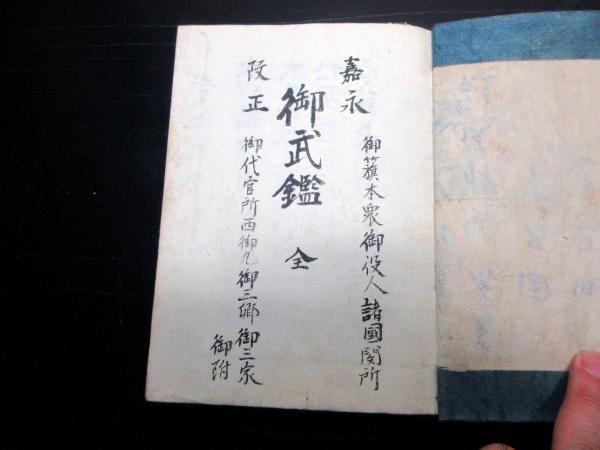 嘉永
改正
御武鑑 全
御籏本衆御役人諸國関所
御代官所西御丸御三卿御三家
御附